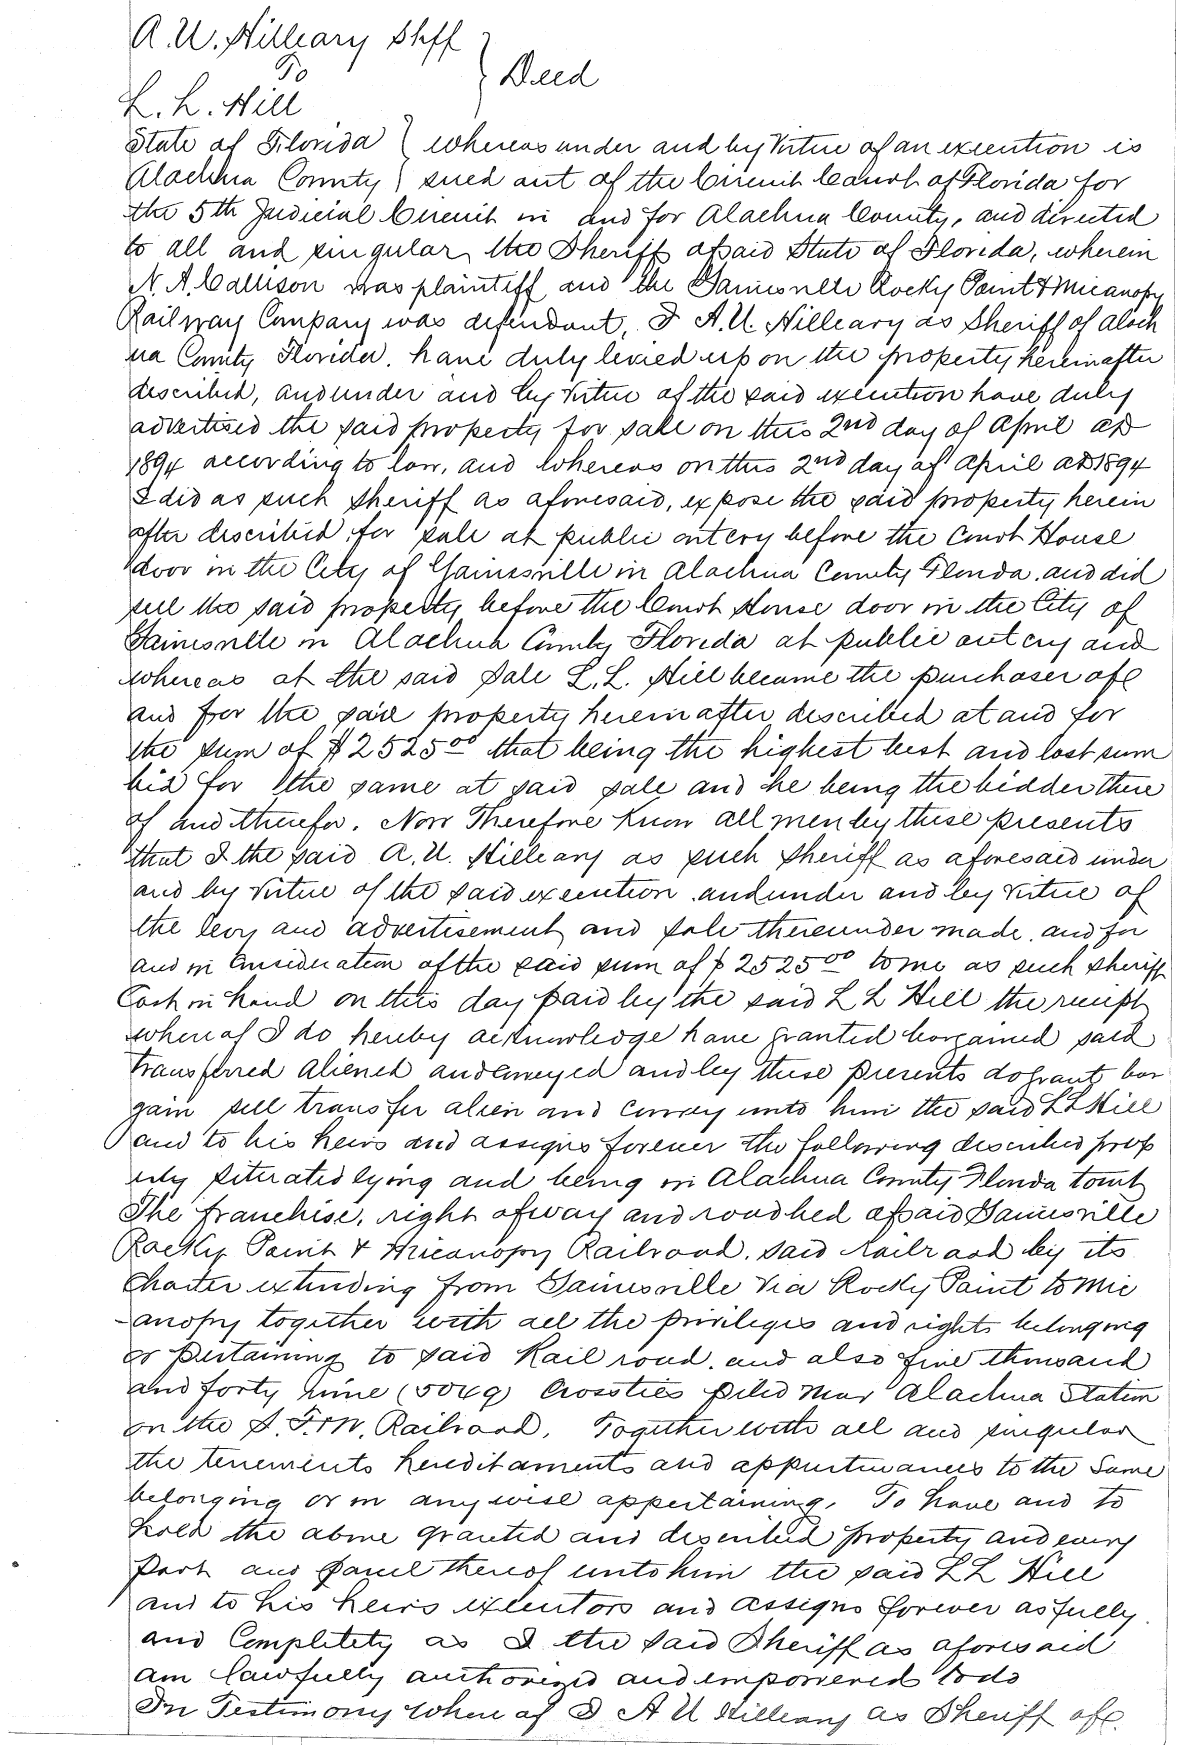 A. U. Hilleary Shff
To } Deed
L. L. Hill
State of Florida } whereas under and by Virtue of an execution is
Alachua County } sued out of the Circuit Court of Florida for
the 5th Judicial Circuit in and for Alachua County, and directed
to all and singular the Sheriff of said State of Florida, wherein
N. A. Callison was plaintiff and the Gainesville Rocky Point & Micanopy
Railway Company was defendant, I A. U. Hilleary as Sheriff of Alach
ua County Florida. have duly levied upon the property hereinafter
described, and under and by virtue of the said execution have duly
advertised the said property for sale on this 2nd day of April AD
1894 according to law, and whereas on this 2nd day of April AD 1894
I did as such Sheriff as aforesaid, expose the said property herein
after described for sale at public outcry before the Court House
door in the City of Gainesville in Alachua County Florida. and did
sell the said property before the Court House door in the City of
Gainesville in Alachua County Florida at public outcry and
whereas at the said Sale L. L. Hill became the purchaser of
and for the said property hereinafter described at and for
the sum of $2525.00 that being the highest best and last sum
bid for the same at said sale and he being the bidder there
of and therefor. Now Therefore Know all men by these presents
that I the said A. U. Hilleary as such Sheriff as aforesaid under
and by virtue of the said execution and under and by virtue of
the levy and advertisement and sale thereunder made. and for
and in Consideration of the said sum of $2525.00 to me as such Sheriff
Cash in hand on this day paid by the said L L Hill the receipt
whereof I do hereby acknowledge have granted bargained sold
transferred aliened and conveyed and by these presents do grant bar
gain sell transfer alien and convey unto him the said L L Hill
and to his heirs and assigns forever the following described prop
erty situated lying and being in Alachua County Florida towit
The franchise, right of way and roadbed of said Gainesville
Rocky Point & Micanopy Railroad. said railroad by its
Charter extending from Gainesville via Rocky Point to Mic
-anopy together with all the privileges and rights belonging
or pertaining to said Rail road. and also five thousand
and forty nine (5049) Crossties piled near Alachua Station
on the S. F. & W. Railroad. Together with all and singular
the tenements hereditaments and appurtenances to the Same
belonging or in any wise appertaining. To have and to
hold the above granted and described property and every
part and parcel thereof unto him the said L L Hill
and to his heirs executors and assigns forever as fully
and Completely as I the said Sheriff as aforesaid
am lawfully authorized and empowered to do
In Testimony where of I A U Hilleary as Sheriff of